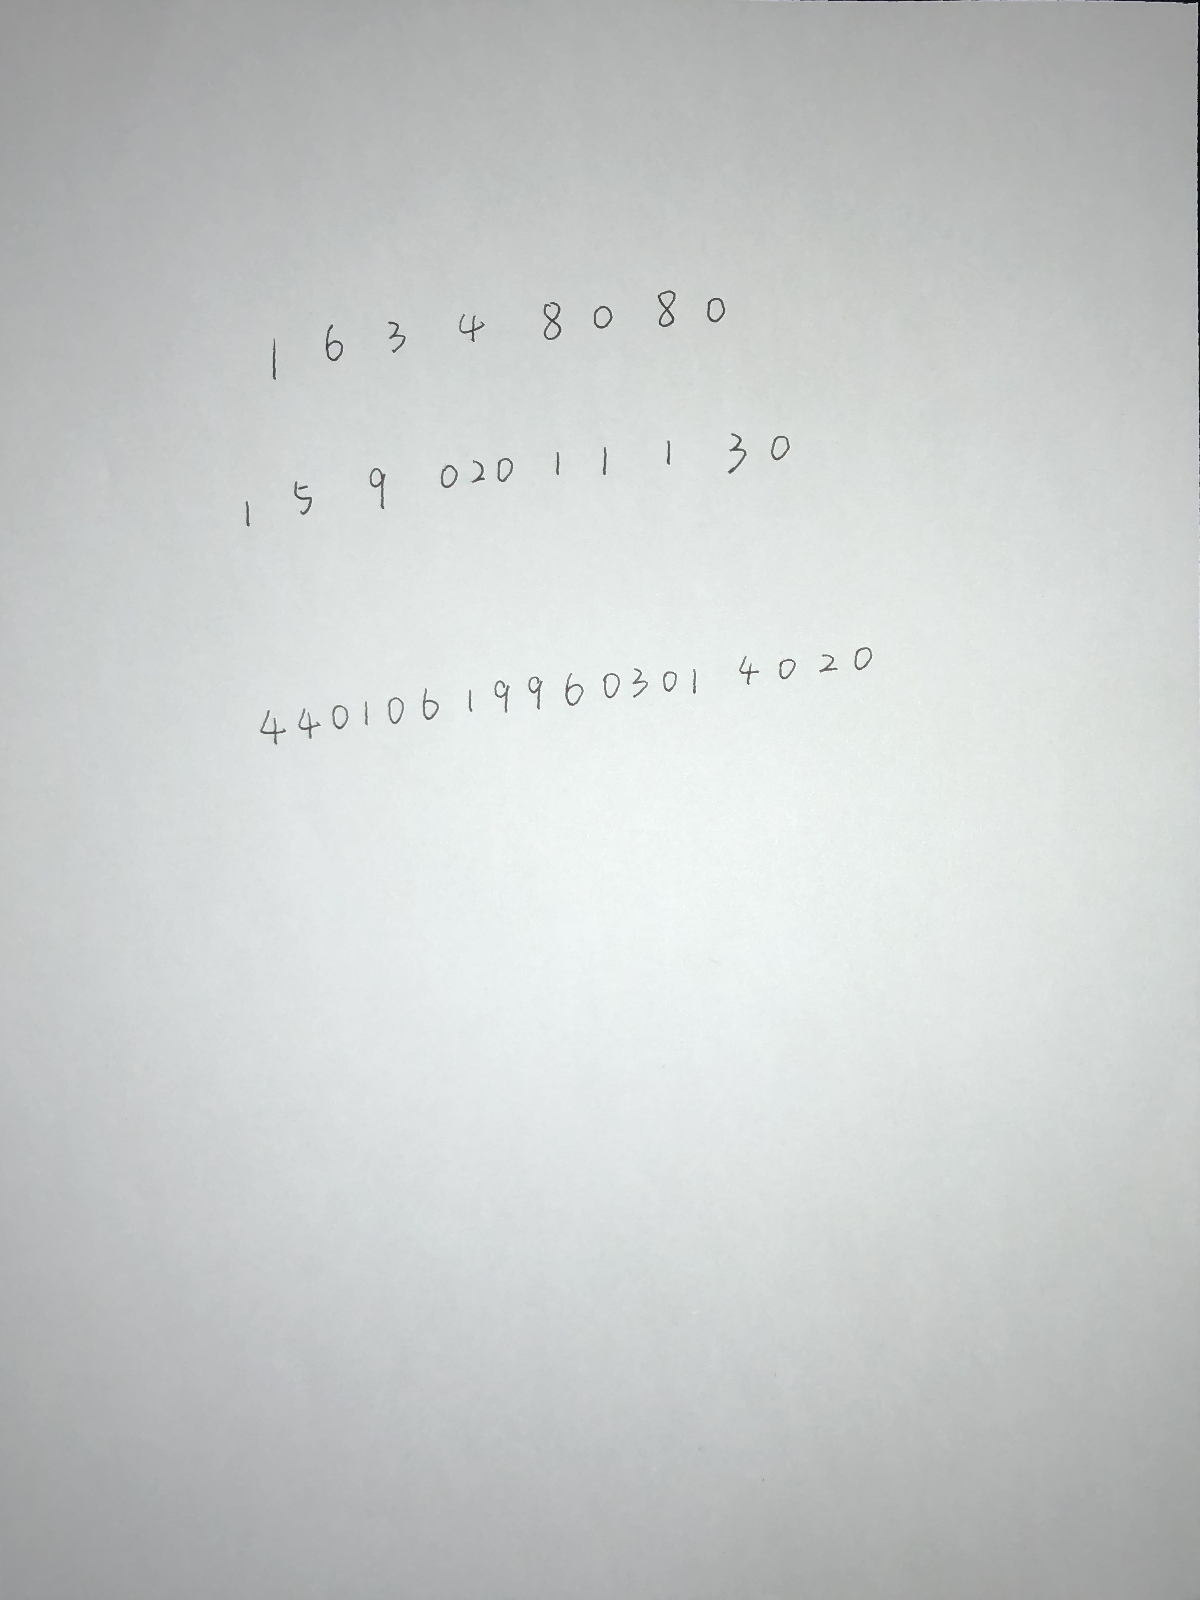 1 6 3 4 8 0 8 0
1 5 9 020 1 1 1 3 0
44010619960301 4020